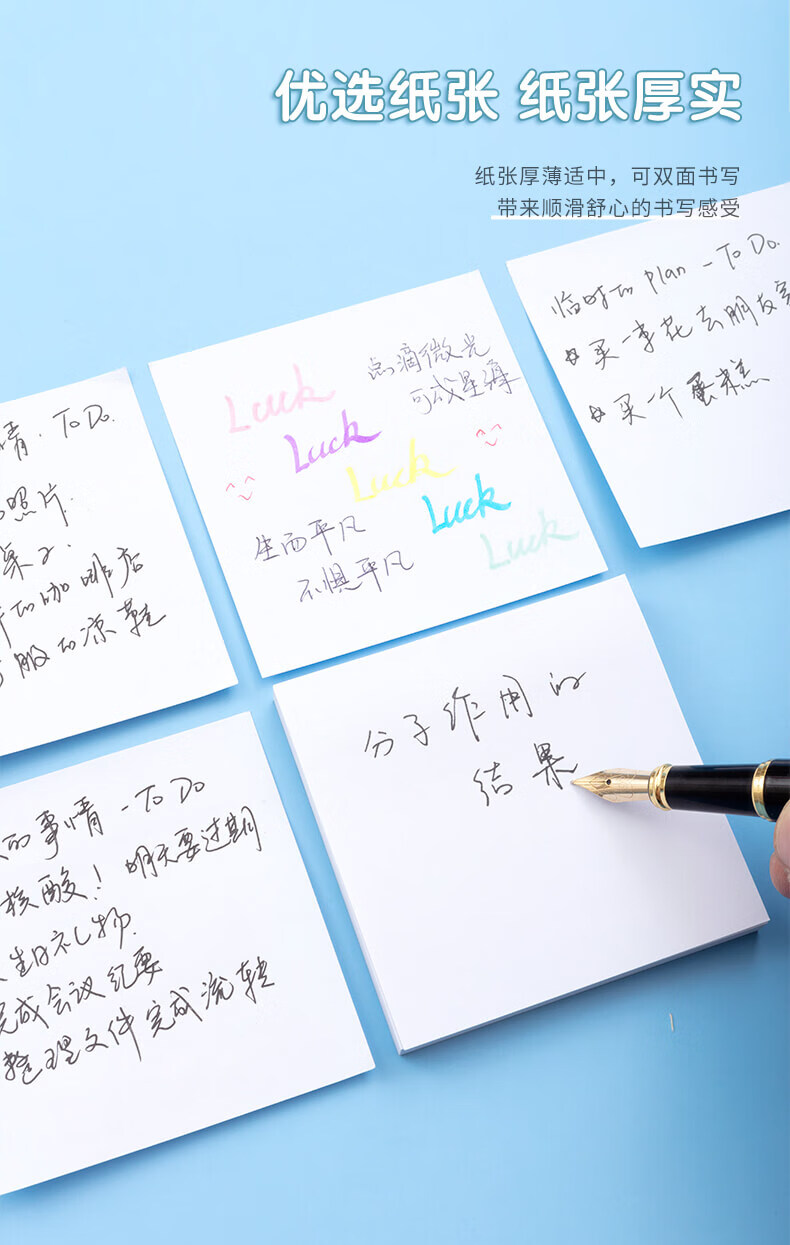 优选纸张 纸张厚实
纸张厚薄适中，可双面书写
带来顺滑舒心的书写感受
临时的 plan - To Do.
买一束花去朋友家
买一个蛋糕
点滴微光
可成星海
Luck
Luck
Luck
Luck
Luck
生而平凡
不惧平凡
情 . To Do.
照片.
桌子.
的咖啡店
服的凉鞋
分子作用的
结果
的事情 - To Do
核酸! 明天要过期
生日礼物.
完成会议纪要
整理文件完成流转